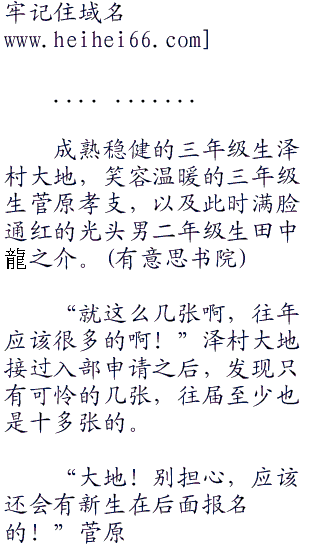 牢记住域名
www.heihei66.com]
.... .......
成熟稳健的三年级生泽
村大地，笑容温暖的三年级
生菅原孝支，以及此时满脸
通红的光头男二年级生田中
龍之介。(有意思书院)
“就这么几张啊，往年
应该很多的啊！”泽村大地
接过入部申请之后，发现只
有可怜的几张，往届至少也
是十多张的。
“大地！别担心，应该
还会有新生在后面报名
的！”菅原